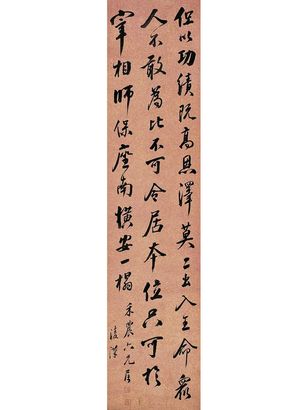 但以功績既高恩澤莫二出入王命眾
人不敢為比不可令居本位只可於
宰相師保座南橫安一榻
禾農六兄屬
凌漢